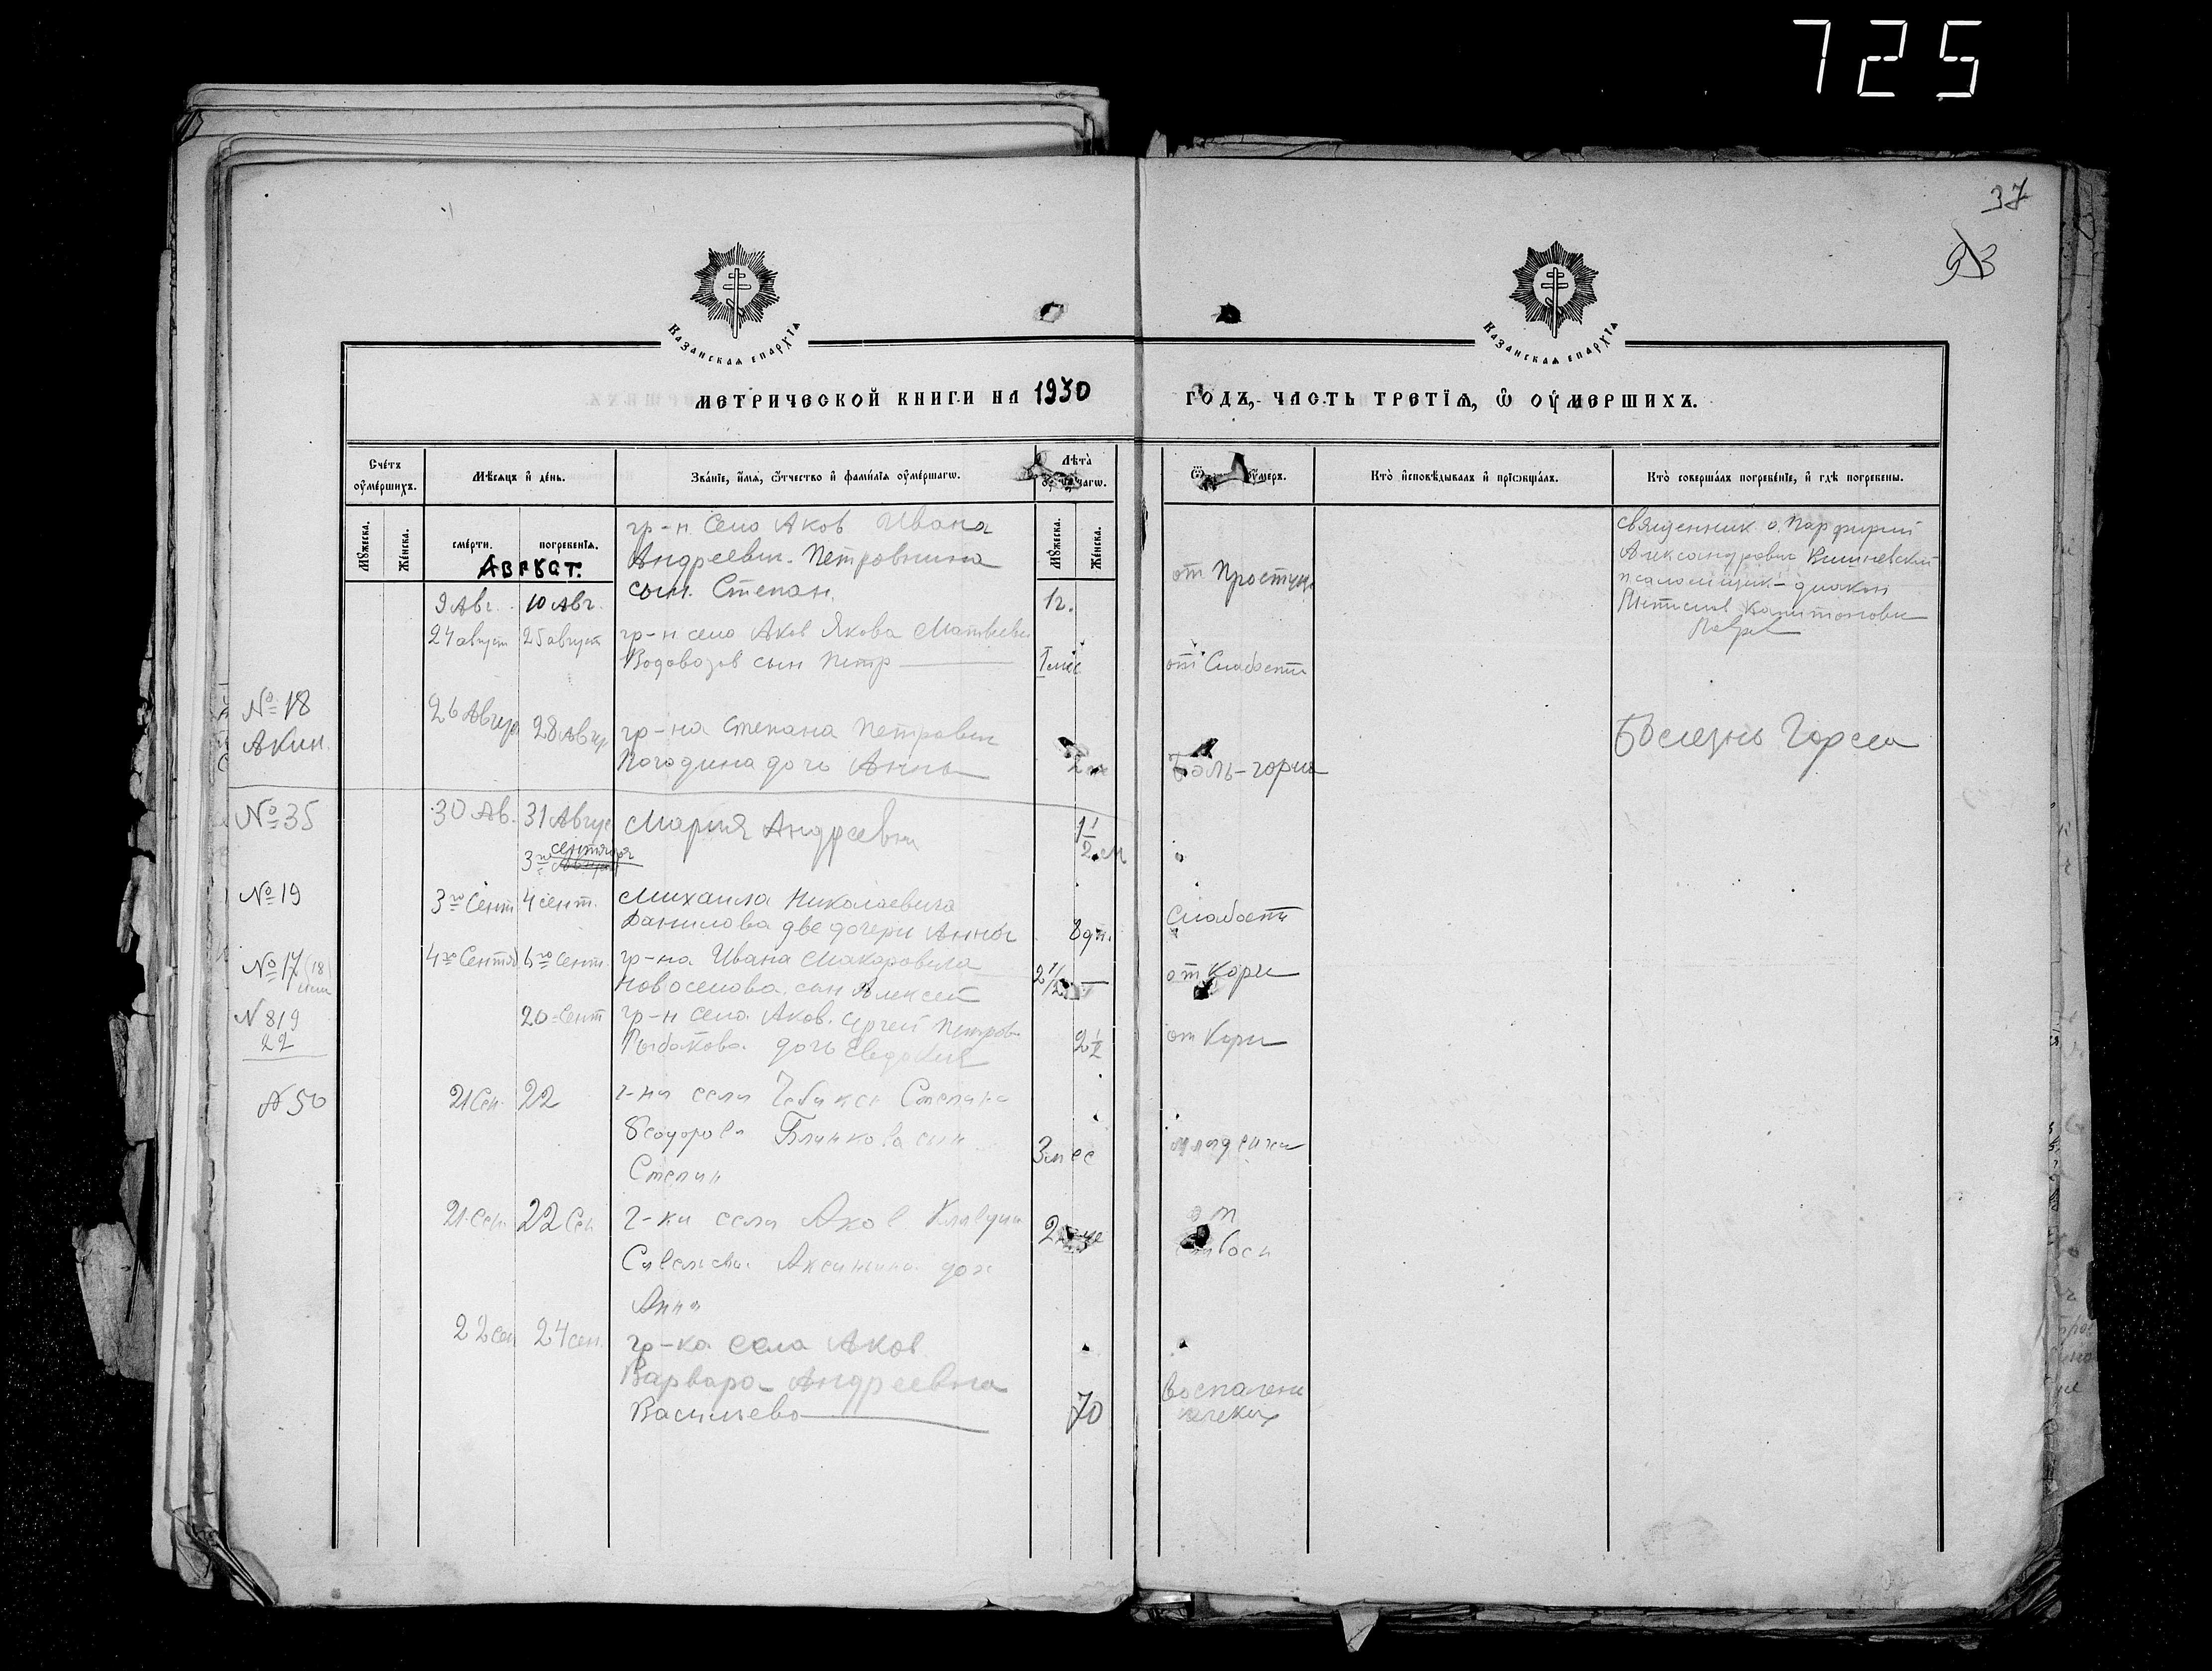 725
37
93
Казанская епархїя
Казанская епархїя
МЕТРИЧЕСКОЙ КНИГИ НА 1930
ГОДЪ, ЧАСТЬ ТРЕТІѦ, Ѡ ОУМЕРШИХЪ.
Счетъ оумершихъ.
Мѣсяцъ и день.
Званїе, имя, отчество и фамилїя оумершагѡ.
Лѣта
Ѿ
оумеръ.
Кто исповѣдывалъ и прїобщалъ.
Кто совершалъ погребенїе, и гдѣ погребены.
Мужеска.
Женска.
смерти.
погребенїя.
Мужеска.
Женска.
Август.
гр-н Село Аков Ивана
Андреевич. Петровнина
сын. Степан.
9 Авг. 10 Авг.
1 г.
от Простуд
священник о Парфирий
Александрович Вишневский
псаломщик - диакон
24 август 25 август
гр-н село Аков Якова Матвеевич
Водовозов сын Петр
1 мес
от Слабости
№ 18
Акин.
26 Август 28 Авгу
гр-на Степана Петрович
Погодина дочь Анна
2
Боль-горла
Болезнь Горла
№ 35
30 Ав. 31 Авгус
Мария Андреевна
1 1/2 м
3го сентября
№ 19
3го Сент 4 сент.
Михаила Николаевича
Данилова две дочери Анны
8 дн.
Слабости
№ 17 (18)
4го Сентя 6го Сент
гр-на Ивана Макаровича
Новоселова сын Алексей
2 1/2
от Кори
N 819
22
20 Сент
гр-н Села Аков. Сергей Петров
Рыбакова дочь Евдокия
2 1/2
от Кори
№ 50
21 Сен. 22
г-на села Чебакса Степана
Феодоров Блинкова сын
Степан
3 мес
младенч
21 Сен. 22 Сен
г-ка села Аков Клавдии
Савельева Аксинина доч
Анна
2
от
22 сен 24 сен.
гр-ка села Аков
Варвара Андреевна
Васильево
70
Воспален
легких